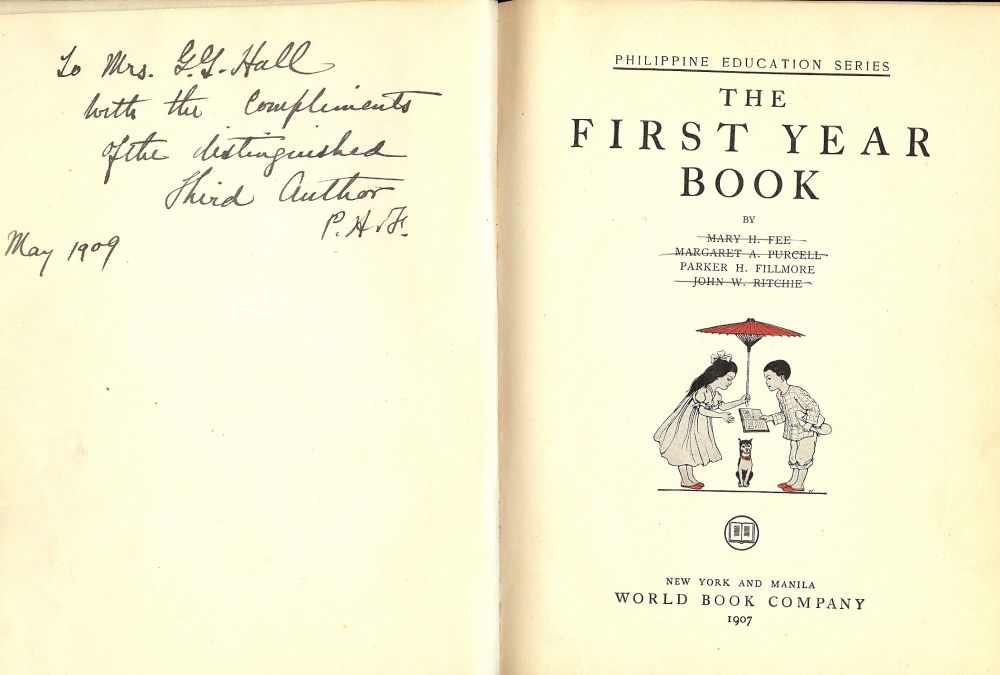 To Mrs. G.G. Hall
with the Compliments
of the distinguished
Third Author
P. H. F.
May 1909
PHILIPPINE EDUCATION SERIES
THE
FIRST YEAR
BOOK
BY
MARY H. FEE
MARGARET A. PURCELL
PARKER H. FILLMORE
JOHN W. RITCHIE
NEW YORK AND MANILA
WORLD BOOK COMPANY
1907